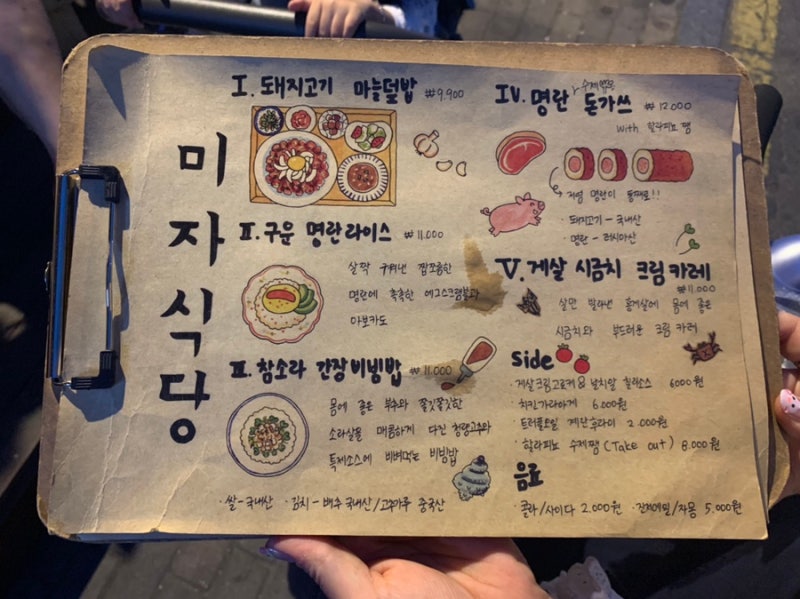 미자식당
I. 돼지고기 마늘덮밥 ₩9,900
II. 구운 명란라이스 ₩11,000
살짝 구워낸 짭쪼롬한
명란에 촉촉한 에그스크램블과
아보카도
III. 참소라 간장비빔밥 ₩11,000
몸에 좋은 부추와 쫄깃쫄깃한
소라살을 매콤하게 다진 청량고추와
특제소스에 비벼먹는 비빔밥
·쌀-국내산 ·김치-배추 국내산/고추가루 중국산
IV. 명란 돈가쓰 ₩12,000
with 할라피뇨 잼
저염 명란이 통째로!!
·돼지고기-국내산
·명란-러시아산
V. 게살 시금치 크림카레
₩11,000
살만 발라낸 홍게살에 몸에 좋은
시금치와 부드러운 크림 카레
Side
게살크림고로케 & 날치알 칠리소스 6000원
·치킨가라아게 6.000원
·트러플오일 계란후라이 2.000원
·할라피뇨 수제잼 (Take out) 8.000원
음료
·콜라/사이다 2.000원 ·진저에일/자몽 5.000원